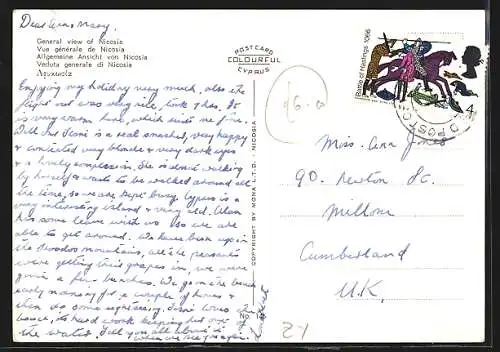 Dear Ann & Mary
General view of Nicosia
Vue générale de Nicosia
Allgemeine Ansicht von Nicosia
Veduta generale di Nicosia
Λευκωσία
Enjoying my holiday very much, also the
flight out was very nice, took 4 hrs. It
is very warm here, which suits me fine.
is a real smasher, very happy
& contented very blonde & very dark eyes
& a lovely complexion. She is almost walking
by herself & wants to be walked around all
the time, so we are kept busy. Cyprus is a
very interesting island & very old. Alan
has some leave with us so we are
able to get around. We have been up in
the Troodos mountains, all the peasants
were getting their grapes in, we were
given a few bunches. We go on the beach
early morning for a couple of hours &
then do some sightseeing. loves the
beach, its hard work keeping her out of
the water. Tell you all about it
when we see you again.
POST CARD
COLOURFUL
CYPRUS
COPYRIGHT BY MONA L.T.D. NICOSIA
No.
£6.00
Battle of Hastings 1066
4d
Miss. Ann Jones
90. Newton St.
Millom
Cumberland
U.K.